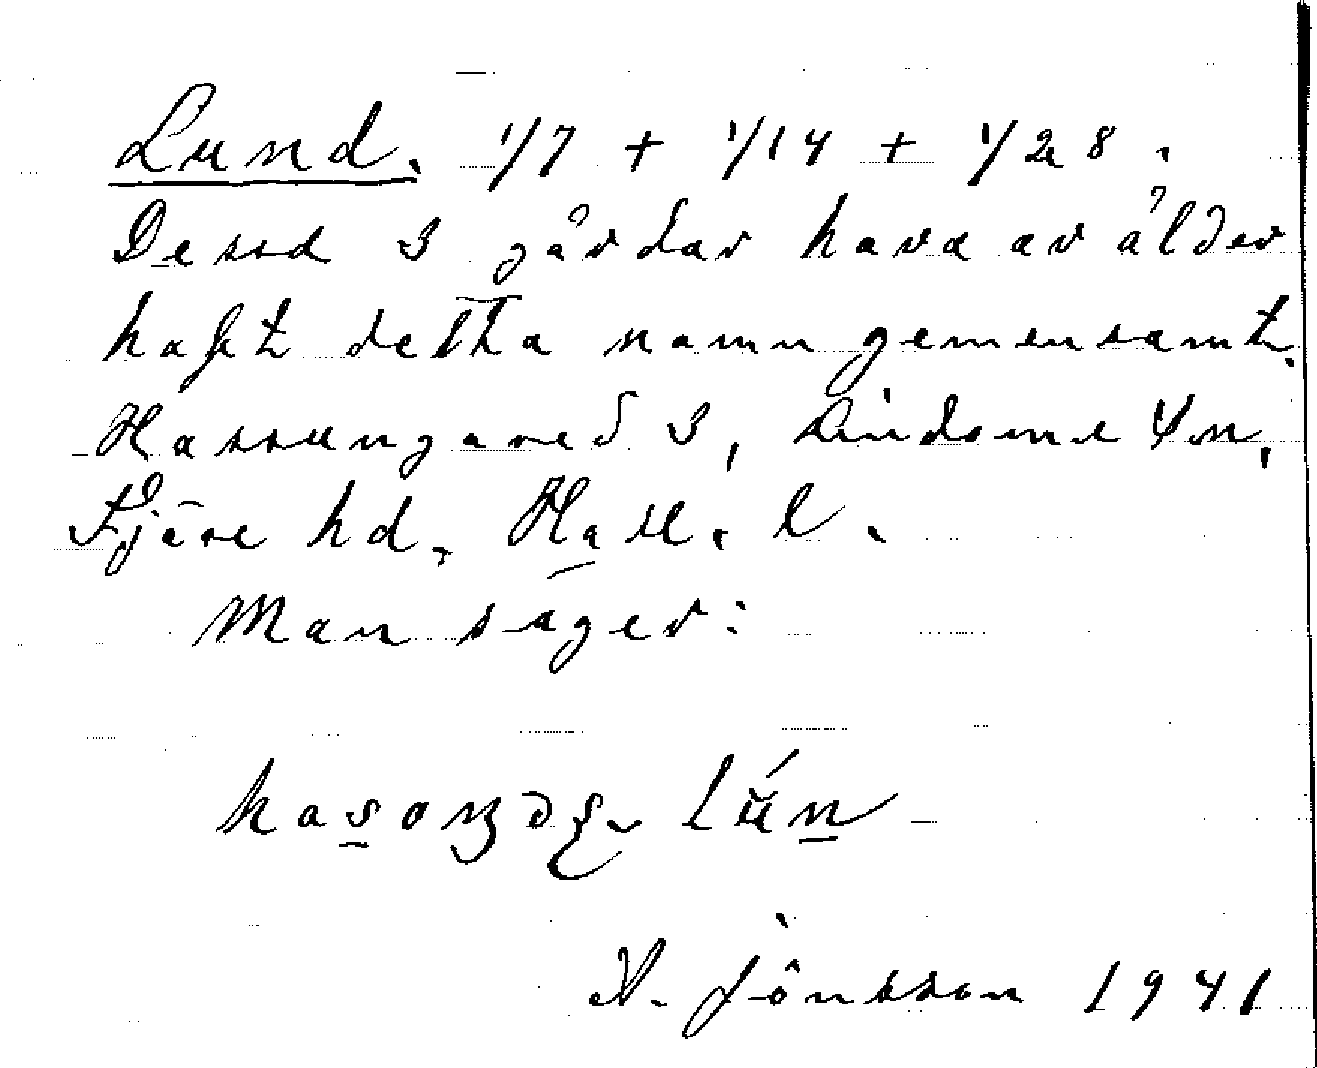 Lund. 1/7 + 1/14 + 1/28.
Dessa 3 gårdar hava av ålder
haft detta namn gemensamt.
Hassungared 3, Lindome sn,
Fjäre hd, Hall. l.
Man säger:
lún
N. Jönsson 1941